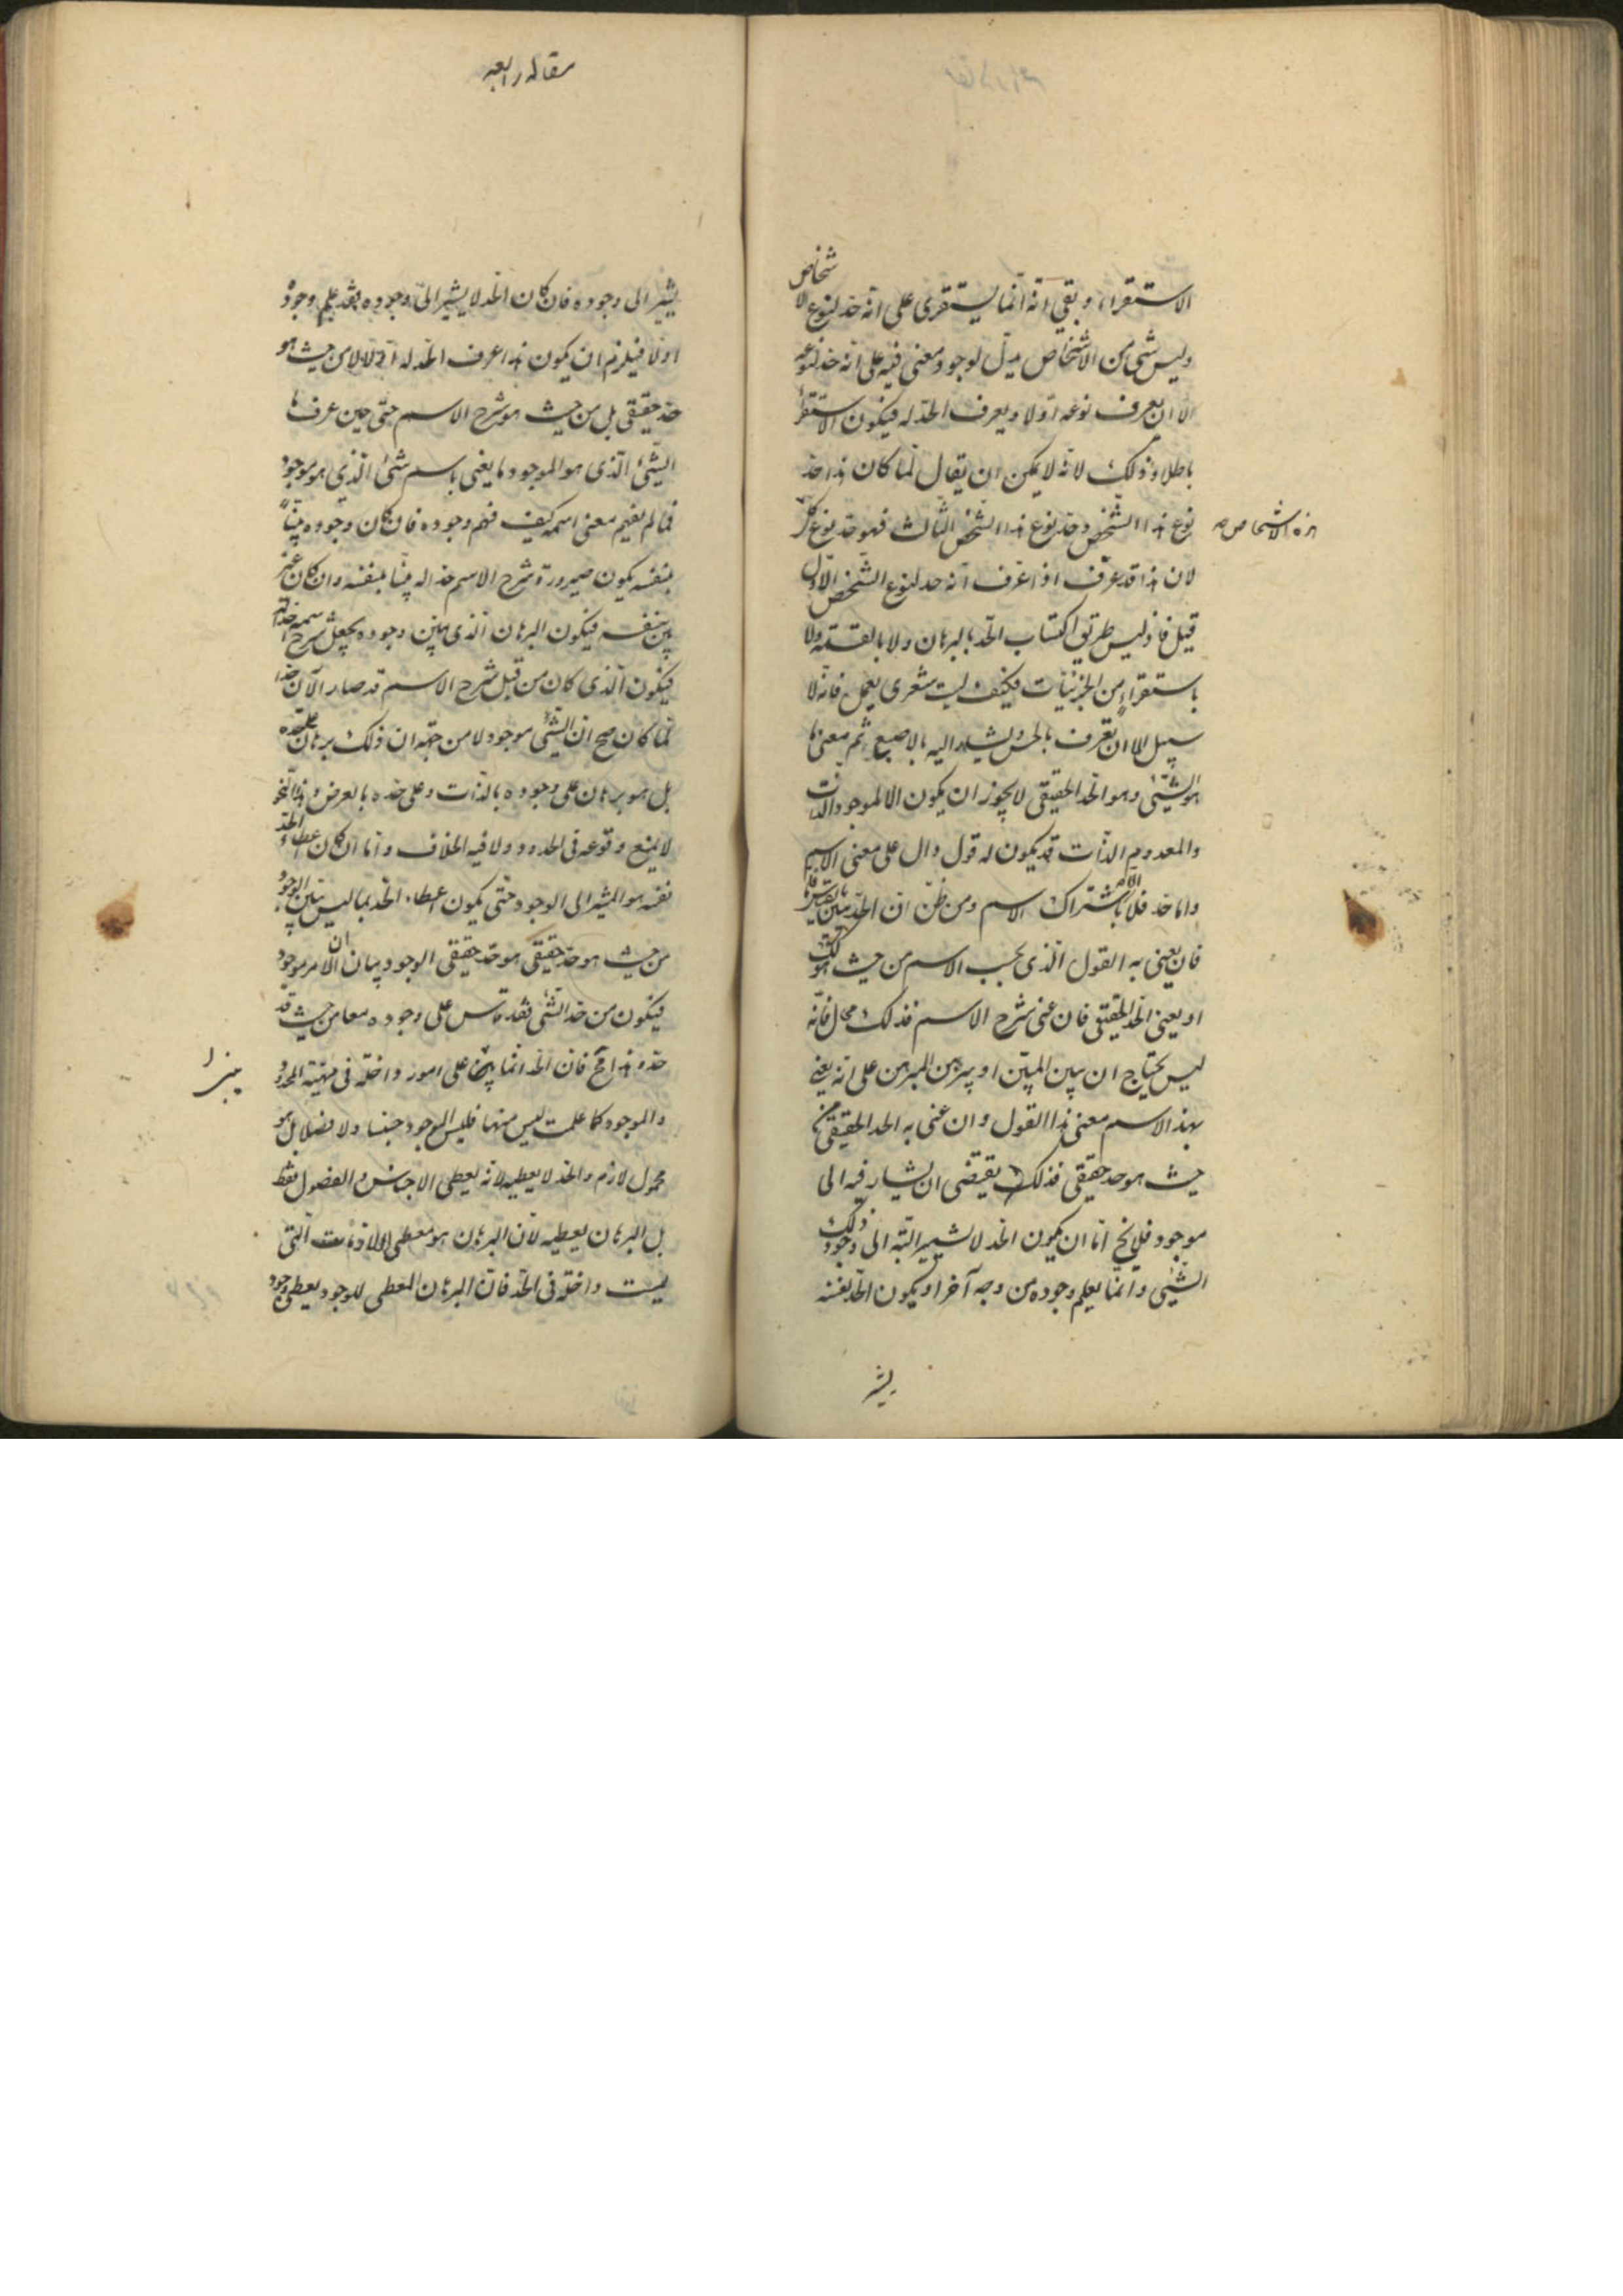 الاستقراء، وبقى انه انما يستقرى على انه حد لنوع الاشخاص
وليس شئ من الاشخاص يدل لوجود معنى فيه على انه حد لنوعه
الا ان يعرف نوعه اولا ويعرف الحد له فيكون الاستقراء
باطلا وذلك لانه لا يمكن ان يقال لما كان هذا حد
نوع هذا الشخص وحد نوع هذا الشخص الثالث فهو حد نوع كل
هذه الاشخاص صح
لان هذا قد عرف اذا عرف انه حد لنوع الشخص الاول
قيل فاذ ليس طريق اكتساب الحد بالبرهان ولا بالقسمة ولا
باستقراء من الجزئيات فكيف ليت شعرى يعمل فانه لا
سبيل الا ان تعرف بالحس ويشار اليه بالاصبع ثم معنى ما
هو الشئ وهو الحد الحقيقى لا يجوز ان يكون الا لموجود الذات
والمعدوم الذات قد يكون له قول دال على معنى الاسم
واما حد فلا الا باشتراك الاسم ومن ظن ان الحد يبين بالقياس
فان يعنى به القول الذى بحسب الاسم من حيث هو كك
او يعنى الحد الحقيقى فان عنى شرح الاسم فذلك محال فانه
ليس يحتاج ان يبين المبين او يبرهن المبرهن على انه يعنى
بهذا الاسم معنى هذا القول وان عنى به الحد الحقيقى من
حيث هو حد حقيقى فذلك يقتضى ان يشار فيه الى
موجود فلا يخ اما ان يكون الحد لا يشير البتة الى وجود ذلك
الشئ وانما يعلم وجوده من وجه آخر او يكون الحد بعينه
يشير
مقاله رابعه
يشير الى وجوده فان كان الحد لا يشير الى وجوده فقد علم وجوده
اولا فيلزم ان يكون هذا عرف الحد له اولا لا من حيث هو
حد حقيقى بل من حيث هو شرح الاسم حتى حين عرف ما
الشئ الذى هو الموجود ما يعنى باسم شئ الذى هو موجود
فما لم يفهم معنى اسمه كيف فهم وجوده فان كان وجوده بينا
بنفسه يكون صيرورة شرح الاسم حدا له بينا بنفسه وان كان غير
بين بنفسه فيكون البرهان الذى يبين وجوده يجعل شرح اسمه حدا له
فيكون الذى كان من قبل شرح الاسم قد صار الآن حدا
لما كان صح ان الشئ موجود لا من جهة ان ذلك برهان على حده
بل هو برهان على وجوده بالذات وعلى حده بالعرض وهذا النحو
لا يمنع وقوعه فى الحدود ولا فيه الخلاف واما ان كان اعطاء الحد
نفسه هو المشير الى الوجود حتى يكون اعطاء الحد بما ليس بين الوجود
من حيث هو حد حقيقى هو حد حقيقى الوجود وبيان ان الامر موجود
فيكون من حد الشئ فقد قاس على وجوده معا من حيث قد
حده وهذا مح فان الحد انما يبنى على امور داخلة فى مهية المحدود
ميزا
والموجود كما علمت ليس منها فليس الموجود جنسا ولا فصلا بل هو
محمول لازم والحد لا يعطيه لانه يعطى الاجناس والفصول فقط
بل البرهان يعطيه لان البرهان هو معطى اللازمات التى
ليست داخلة فى الحد فان البرهان المعطى للوجود يعطى وجود